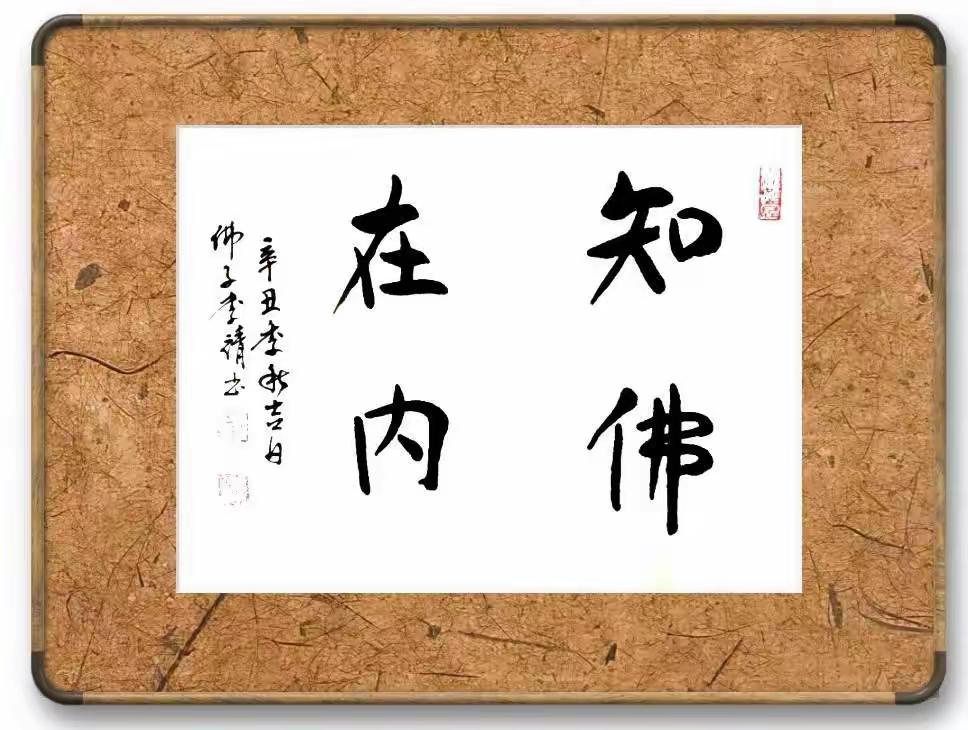 知佛
在内
辛丑季秋吉日
佛子李靖书